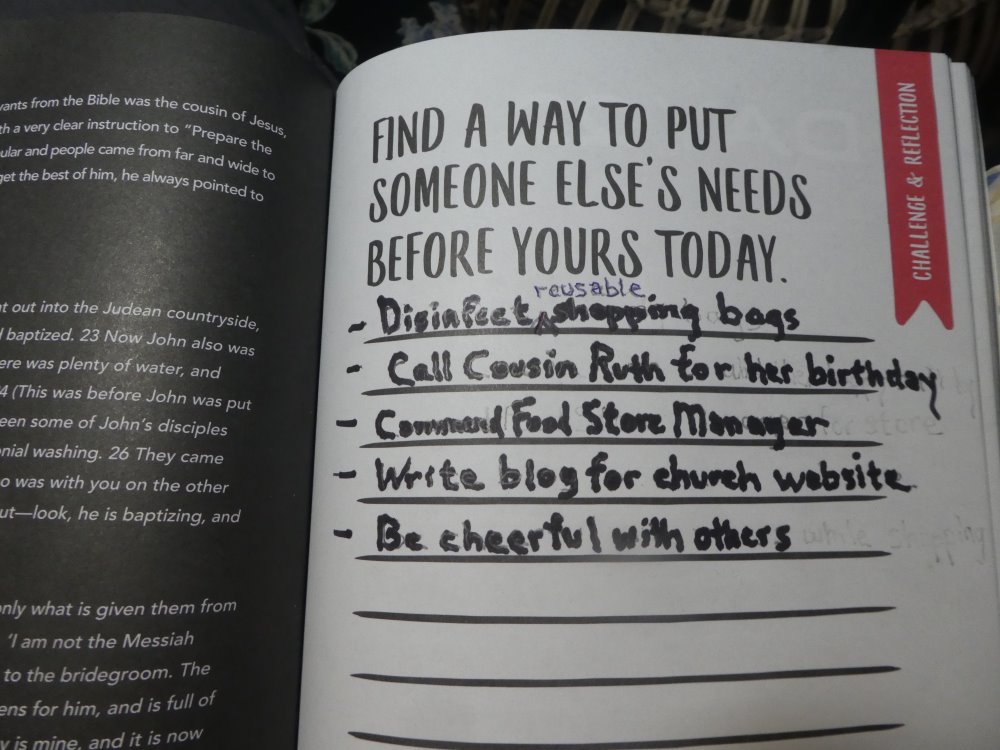 vants from the Bible was the cousin of Jesus,
th a very clear instruction to "Prepare the
ular and people came from far and wide to
get the best of him, he always pointed to
nt out into the Judean countryside,
d baptized. 23 Now John also was
ere was plenty of water, and
4 (This was before John was put
een some of John's disciples
nial washing. 26 They came
o was with you on the other
ut—look, he is baptizing, and
only what is given them from
'I am not the Messiah
to the bridegroom. The
ens for him, and is full of
y is mine, and it is now
FIND A WAY TO PUT
SOMEONE ELSE'S NEEDS
BEFORE YOURS TODAY.
reusable
- Disinfect ^ shopping bags
- Call Cousin Ruth for her birthday
- Commend Food Store Manager
- Write blog for church website
- Be cheerful with others while shopping
CHALLENGE & REFLECTION